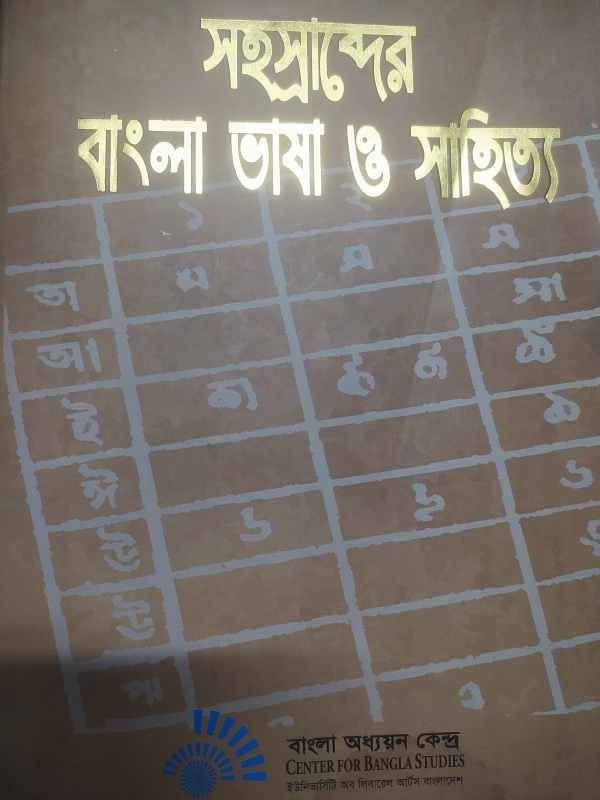 সহস্রাব্দের
বাংলা ভাষা ও সাহিত্য
১ ২
অ
আ
ই
ঈ
উ
ঊ
ঋ
বাংলা অধ্যয়ন কেন্দ্র
CENTER FOR BANGLA STUDIES
ইউনিভার্সিটি অব লিবারেল আর্টস বাংলাদেশ